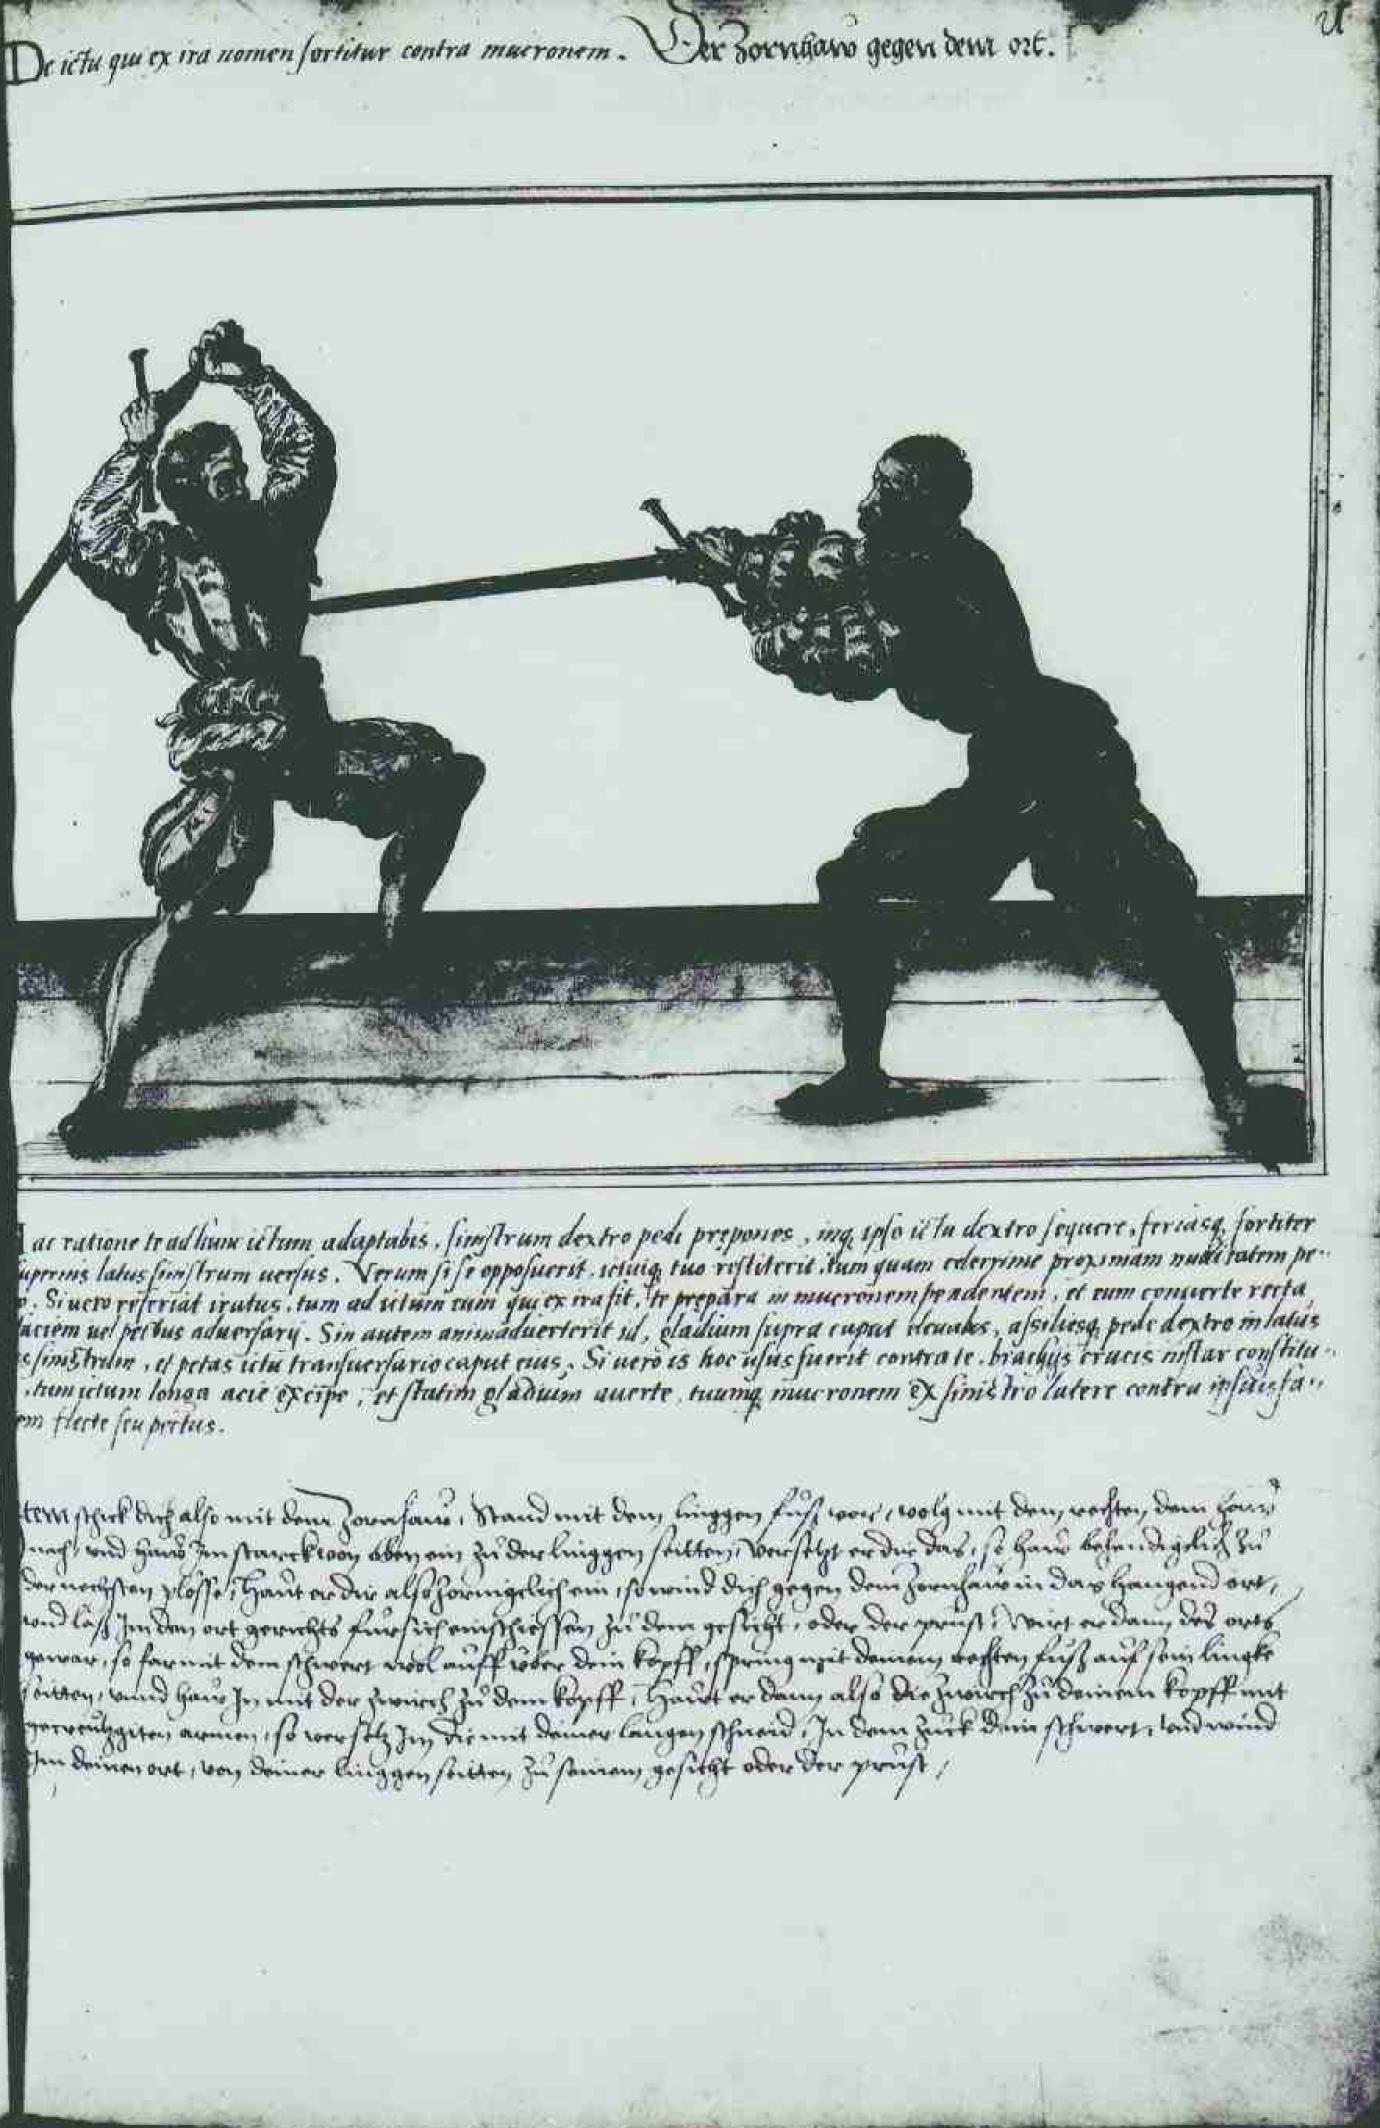 De ictu qui ex ira nomen sortitur contra mucronem. Der Zornhaw gegen dem ort.
ac ratione te ad hunc ictum adaptabis, sinistrum dextro pedi prępones, inq ipso ictu dextro sequere, feriasq fortiter
supernis latus sinistrum uersus. Verum si se opposuerit, ictuiq tuo restiterit, tum quam celerrime proximam nuditatem pe-
o. Si uero te feriat iratus, tum ad ictum eum qui ex ira fit, te prępara in mucronem pendentem, et eum conuerte recta
faciem uel pectus aduersarij. Sin autem animaduerterit id, gladium supra caput eleuabis, assiliesq pede dextro in latus
s sinistrum, et petas ictu transuersario caput eius. Si uero is hoc usus fuerit contra te, brachijs crucis instar constitu-
, tum ictum longa acie excipe, et statim gladium auerte, tuumq mucronem ex sinistro latere contra ipsius fa-
em flecte seu pectus.
tem schick dich also mit dem Zornhaw, Stand mit dem linggen fuß vor, volg mit dem rechten dem Zorn
nach, vnd haw Im starck von oben ein zu der linggen seitten, versetzt er dir das, so haw behendigclich zu
der nechsten plösse, Hawt er dir also zornigclich ein, so wind dich gegen dem Zornhaw in das hangend ort,
vnd laß Im den ort gerichts für sich einschiessen zu dem gesicht, oder der prust, Wirt er dann des orts
gewar, so far mit dem schwert wol auff vber dein kopff, spring mit deinem rechten fuß auf sein lingke
seitten, vnnd haw In mit der zwirch zu dem kopff, Hawt er dann also die zwirch zu deinem kopff mit
gecreutzgiten armen, so versetz Im die mit deiner langen schneid, In dem zuck dein schwert, vnd wind
Im deinen ort, von deiner linggen seitten zu seinem gesicht oder der prust,